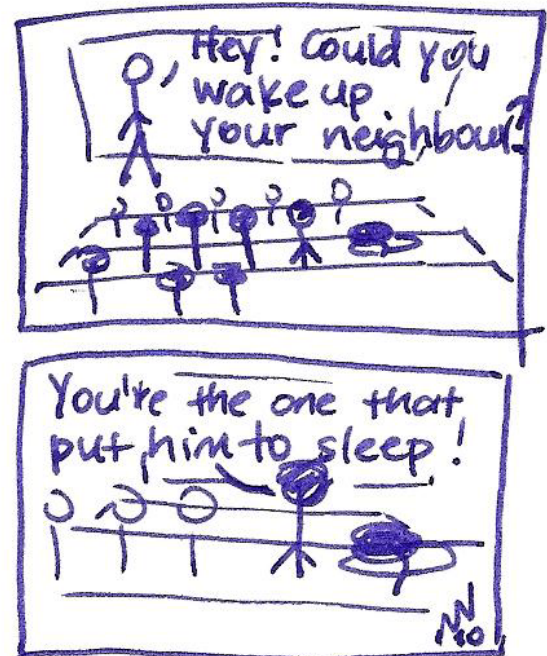 Hey! Could you
wake up
your neighbour?
You're the one that
put him to sleep!